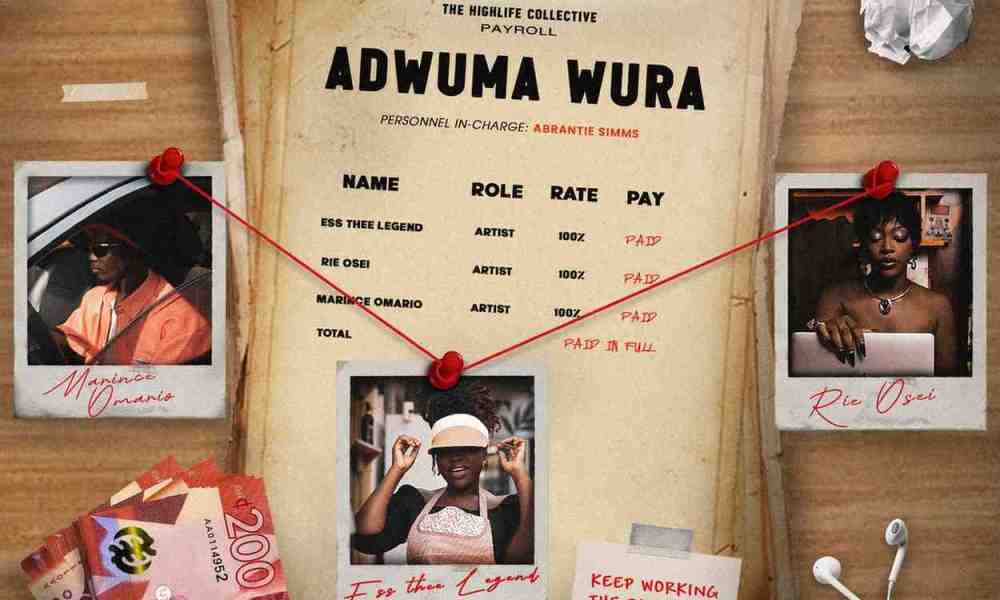 THE HIGHLIFE COLLECTIVE
PAYROLL
ADWUMA WURA
PERSONNEL IN-CHARGE: ABRANTIE SIMMS
NAME ROLE RATE PAY
ESS THEE LEGEND ARTIST 100% PAID
RIE OSEI ARTIST 100% PAID
MARINCE OMARIO ARTIST 100% PAID
TOTAL PAID IN FULL
Marince
Omario
Rie Osei
Ess thee Legend
200
AA0114952
KEEP WORKING